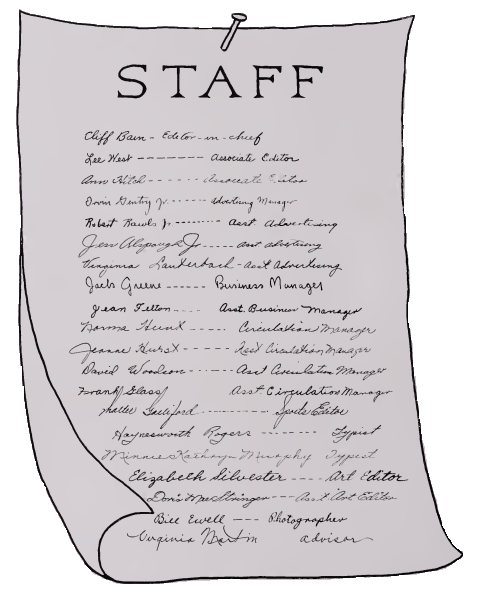 STAFF
Cliff Bain - Editor-in-chief
Lee West ------- Associate Editor
Ann Hitch ------ Associate Editor
Orvin Gentry Jr. ----- Advertising Manager
Robert Rawls Jr ------- Asst Advertising
Jess Alspaugh Jr ----- asst advertising
Virginia Lauderbach - Asst Advertising
Jack Greene ------ Business Manager
Jean Felton ---- Asst. Business Manager
Norma Hunt ---- Circulation Manager
Jeanne Hurst ---- Asst Circulation Manager
David Woodson ------ Asst Circulation Manager
Frank Glass Asst. Circulation Manager
Gulliford -------- Sports Editor
Haynesworth Rogers ------- Typist
Minnie Kathryn Murphy Typist
Elizabeth Silvester ---- Art Editor
Doris MacStringer --- Ass't Art Editor
Bill Ewell --- Photographer
Virginia Martin advisor